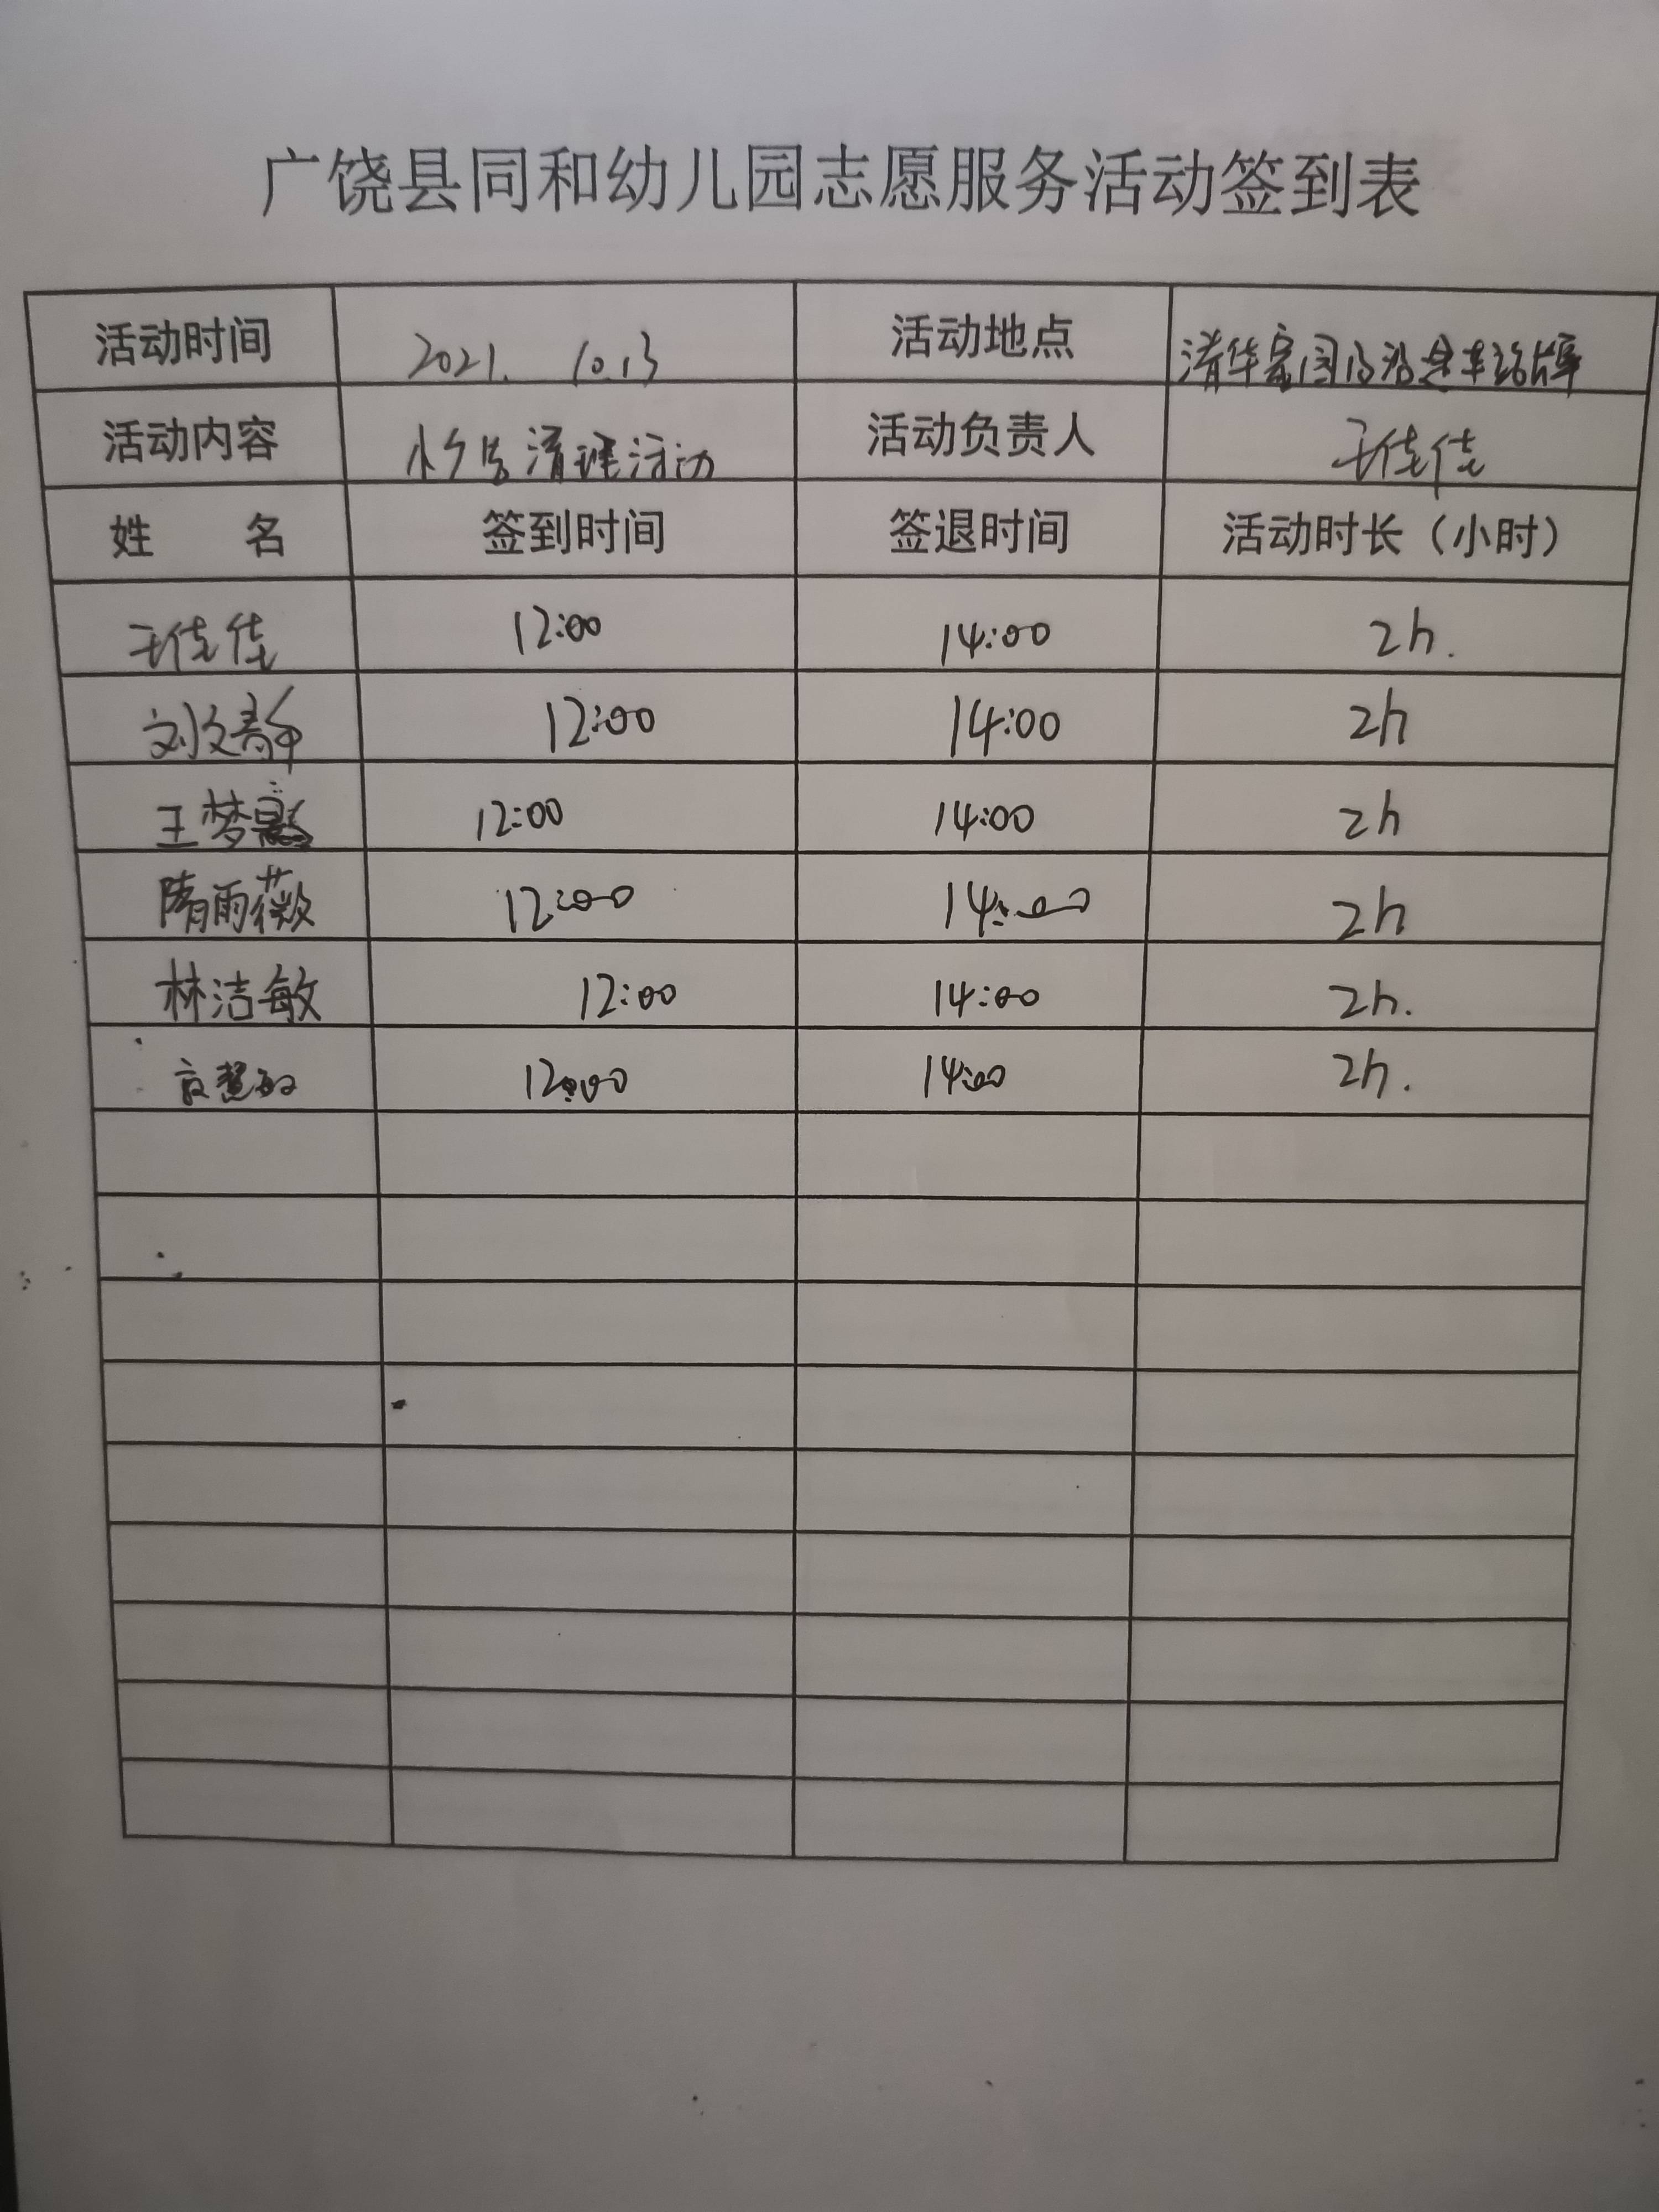 广饶县同和幼儿园志愿服务活动签到表
活动时间 2021. 10.13 活动地点 清华园
活动内容 小广告清理活动 活动负责人 王佳佳
姓 名 签到时间 签退时间 活动时长（小时）
王佳佳 12:00 14:00 2h.
刘文静 12:00 14:00 2h
王梦 12:00 14:00 2h
隋雨薇 12:00 14:00 2h
林洁敏 12:00 14:00 2h.
12:00 14:00 2h.